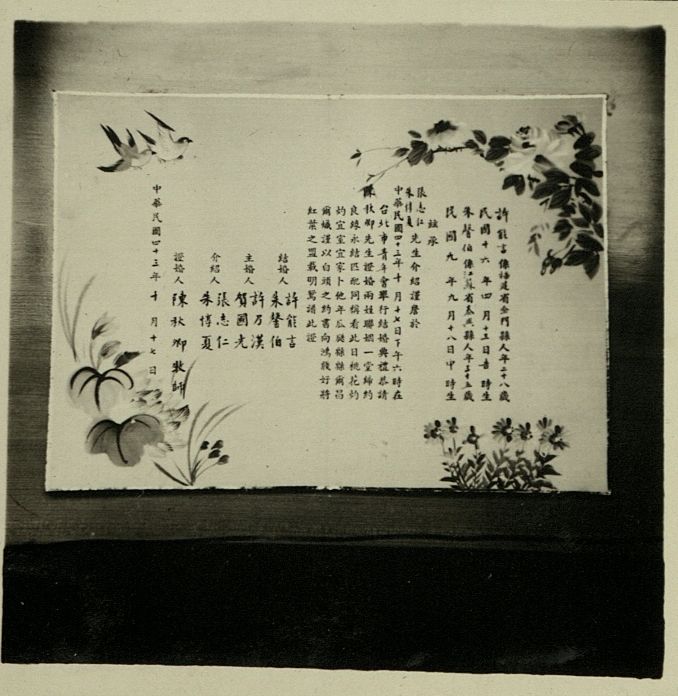 許能言係福建省金門縣人年二十八歲
民國十六年四月十三日吉時生
朱馨伯係江蘇省泰興縣人年三十五歲
民國九年九月十八日中時生
茲承
張志仁
朱惇夏先生介紹謹詹於
中華民國四十三年十月十七日下午六時在
台北市青年會舉行結婚典禮恭請
陳秋卿先生證婚兩姓聯姻一堂締約
良緣永結匹配同稱看此日桃花灼
灼宜室宜家卜他年瓜瓞緜緜爾昌
爾熾謹以白頭之約書向鴻箋好將
紅葉之盟載明鴛譜此證
結婚人 許能言
朱馨伯
主婚人 許乃漢
賀國光
介紹人 張志仁
朱惇夏
證婚人 陳秋卿牧師
中華民國四十三年十月十七日